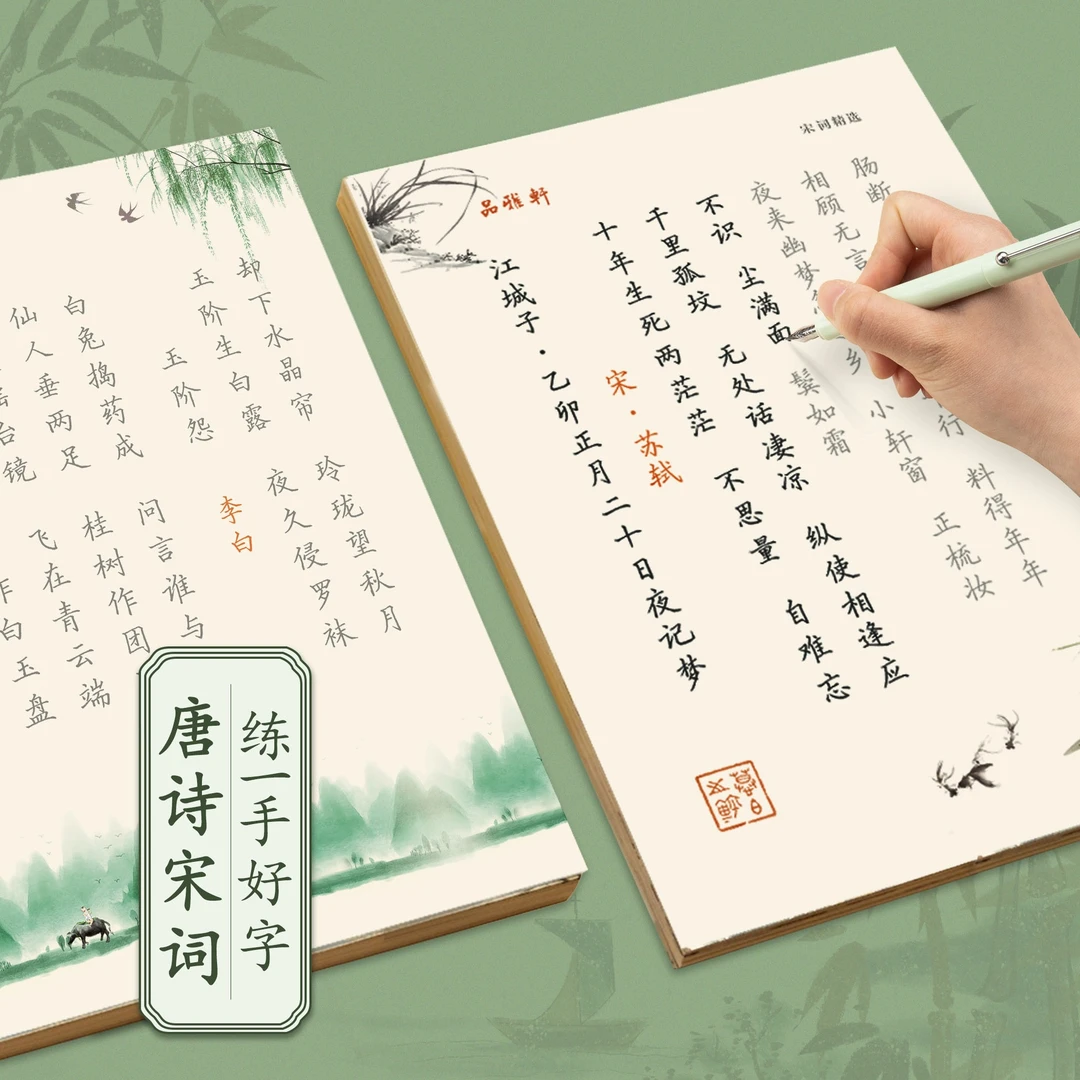 宋词精选
品雅轩
江城子·乙卯正月二十日夜记梦
宋·苏轼
十年生死两茫茫 不思量 自难忘
千里孤坟 无处话凄凉 纵使相逢应
不识 尘满面 鬓如霜
夜来幽梦 乡 小轩窗 正梳妆
相顾无言 行 料得年年
肠断
作白玉盘
台镜 飞在青云端
仙人垂两足 桂树作团
白兔捣药成 问言谁与
玉阶怨 李白
玉阶生白露 夜久侵罗袜
却下水晶帘 玲珑望秋月
唐诗宋词
练一手好字